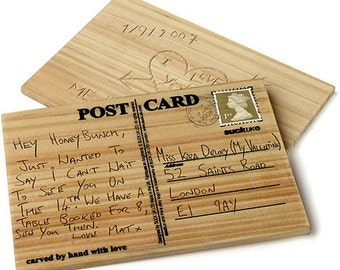 1/9/2007
I
LOVE
POST CARD
1ST
suck UK
HEY HONEYBUNCH,
JUST WANTED TO
SAY I CAN'T WAIT
TO SEE YOU ON
THE 14TH WE HAVE A
TABLE BOOKED FOR 8,
SEE YOU THEN.
LOVE MATX
carved by hand with love
MISS KIRA DELWEY (MY VALENTINE)
Address
52 SAINTS ROAD
LONDON
E1 9AY